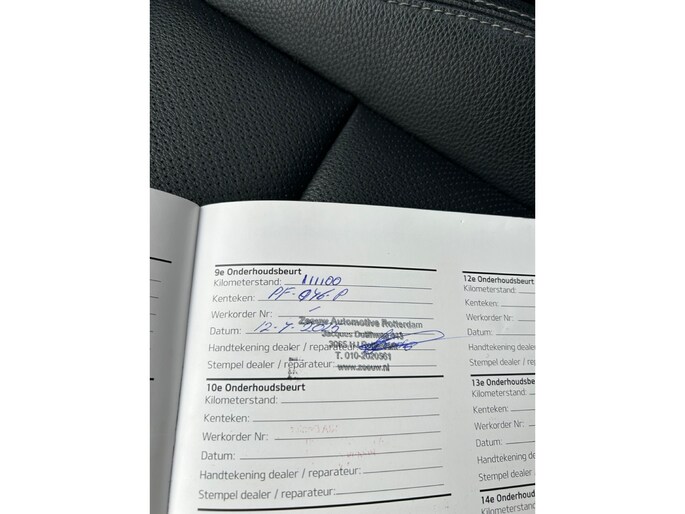 9e Onderhoudsbeurt
Kilometerstand: 111100
Kenteken: PF-946-P
Werkorder Nr:
Zeeuw Automotive Rotterdam
Datum: 12-4-2022
Handtekening dealer / reparateur:
T. 010-2020561
Stempel dealer / reparateur: www.zeeuw.nl
10e Onderhoudsbeurt
Kilometerstand:
Kenteken:
Werkorder Nr:
Datum:
Handtekening dealer / reparateur:
Stempel dealer / reparateur:
12e Onderhoudsbeurt
Kilometerstand:
Kenteken:
Werkorder Nr:
Datum:
Handtekening dealer /
Stempel dealer / reparat
13e Onderhoudsbe
Kilometerstand:
Kenteken:
Werkorder Nr:
Datum:
Handtekening de
Stempel dealer /
14e Onderhoud
Kilometerstand